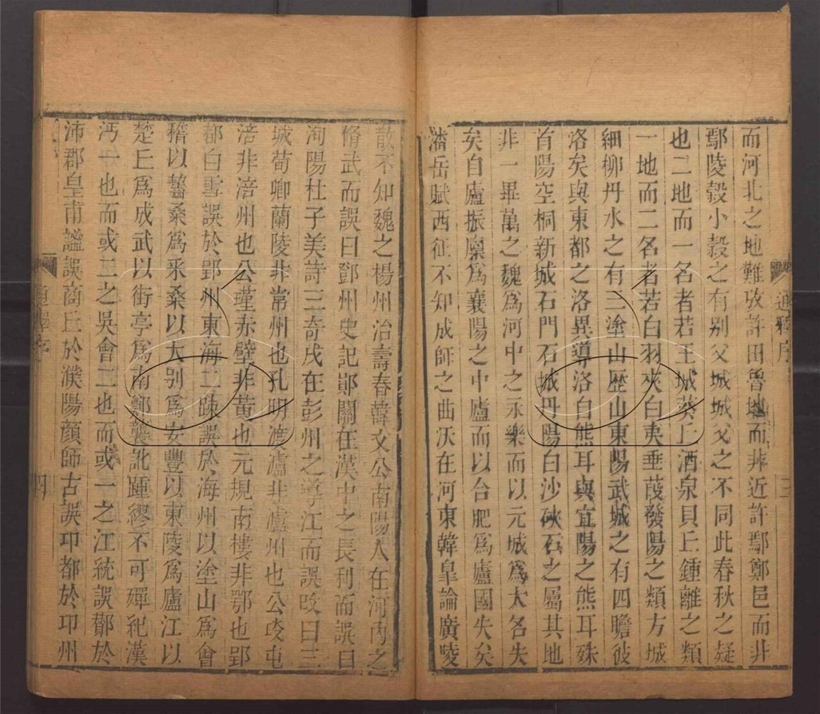 而河北之地難攷許田魯地而非近許鄢鄭邑而非
鄢陵穀小穀之有别父城城父之不同此春秋之疑
也二地而一名者若王城葵丘酒泉貝丘鍾離之類
一地而二名者若白羽夾白夷垂葭發陽之類方城
細柳丹水之有三塗山歷山東陽武城之有四瞻彼
洛矣與東都之洛異導洛自熊耳與宜陽之熊耳殊
首陽空桐新城石門石城丹陽白沙硤石之屬其地
非一畢萬之魏爲河中之永樂而以元城爲大名失
矣自廬振廩爲襄陽之中廬而以合肥爲廬國失矣
潘岳賦西征不知成師之曲沃在河東韓臯論廣陵
通釋序
三
散不知魏之楊州治壽春韓文公南陽人在河內之
脩武而誤曰鄧州史記鄖關在漢中之長利而誤曰
洵陽杜子美詩三奇戍在彭州之導江而誤改曰三
城荀卿蘭陵非常州也孔明渡瀘非瀘州也公孜屯
涪非涪州也公瑾赤壁非黄也元規南樓非鄂也郢
都白雪誤於郢州東海二疎誤於海州以塗山爲會
稽以翳桑爲采桑以大别爲安豐以東陵爲廬江以
楚丘爲成武以街亭爲南鄭襲訛踵繆不可殫紀漢
沔一也而或二之吳會二也而或一之江統誤鄼於
沛郡皇甫謐誤商丘於濮陽顏師古誤邛都於邛州
通釋序
四